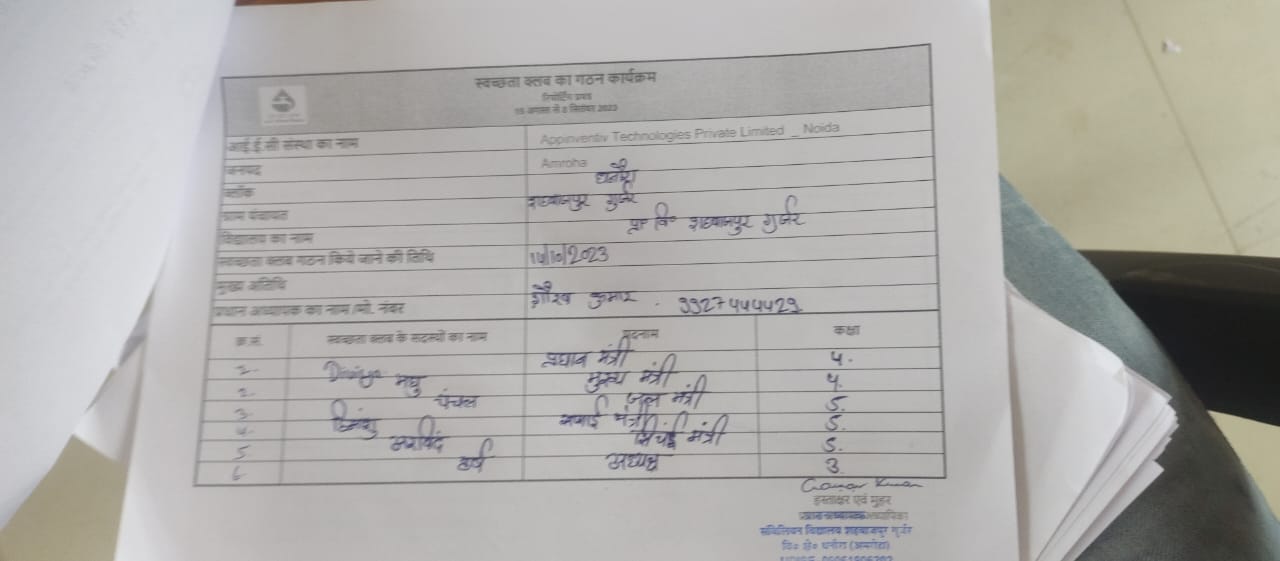 स्वच्छता क्लब का गठन कार्यक्रम
रिपोर्टिंग प्रपत्र
आई.ई.सी संस्था का नाम Appinventiv Technologies Private Limited _ Noida
जनपद Amroha
ब्लॉक धनौरा
ग्राम पंचायत शहबाजपुर गुर्जर
विद्यालय का नाम प्रा० वि० शहबाजपुर गुर्जर
स्वच्छता क्लब गठन किये जाने की तिथि 14/10/2023
मुख्य अतिथि
प्रधान अध्यापक का नाम /मो. नंबर गौरव कुमार . 9927444429
क्र.सं. स्वच्छता क्लब के सदस्यों का नाम पदनाम कक्षा
1. Divya प्रधान मंत्री 4.
2. मधु मुख्य मंत्री 4.
3. चंचल जल मंत्री 5.
4. हिमांशु सफाई मंत्री 5.
5 अरविंद सिंचाई मंत्री 5.
6 हर्ष अध्यक्ष 3.
Gaurav Kumar
हस्ताक्षर एवं मुहर
संविलियन विद्यालय शहबाजपुर गुर्जर
वि० क्षे० धनौरा (अमरोहा)